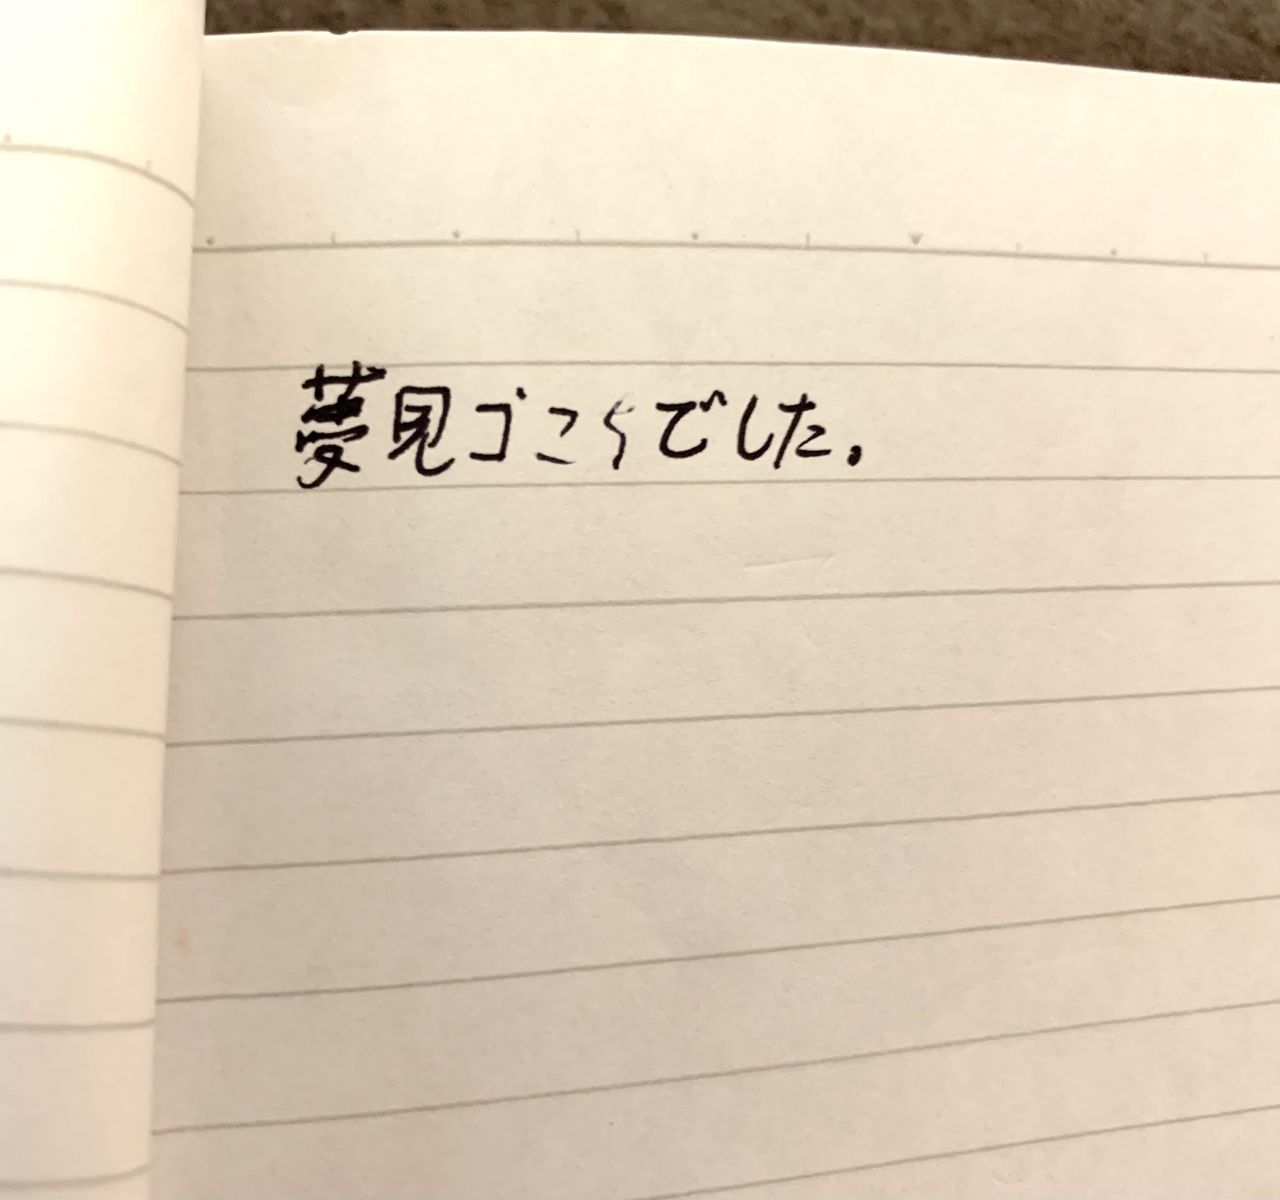 夢見ゴこちでした.